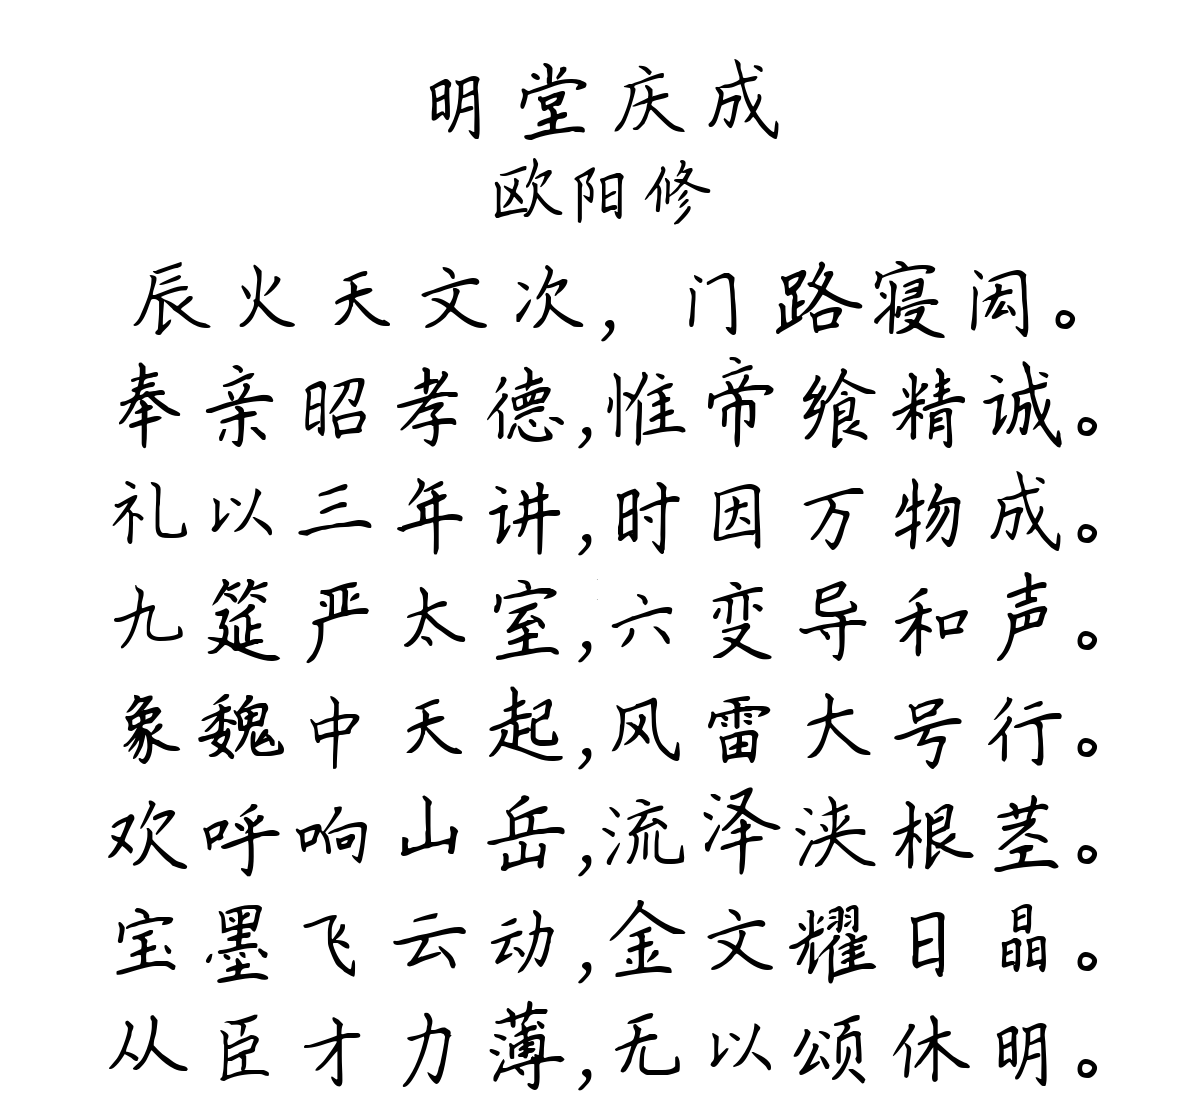 明堂庆成
欧阳修
辰火天文次，门路寝闳。
奉亲昭孝德,惟帝飨精诚。
礼以三年讲,时因万物成。
九筵严太室,六变导和声。
象魏中天起,风雷大号行。
欢呼响山岳,流泽浃根茎。
宝墨飞云动,金文耀日晶。
从臣才力薄,无以颂休明。